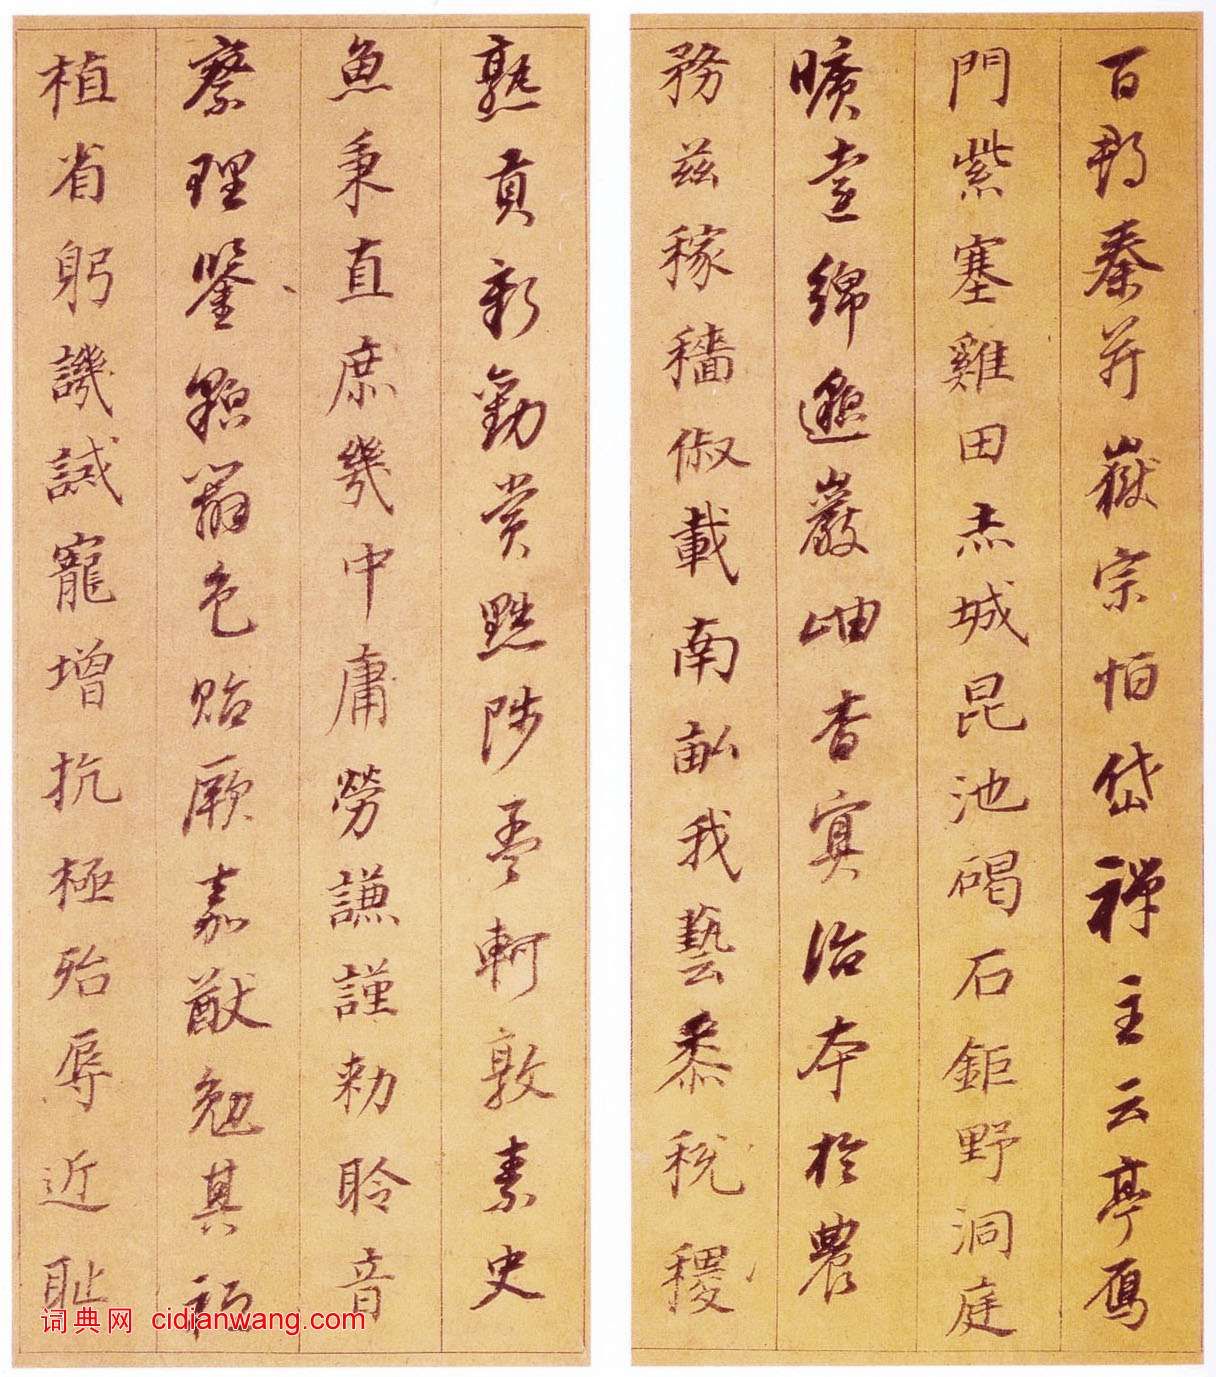 百郡秦并嶽宗恒岱禅主云亭雁
門紫塞雞田赤城昆池碣石鉅野洞庭
曠遠綿邈巖岫杳冥治本於農
務茲稼穡俶載南畝我藝黍稅稷
熟貢新勸賞黜陟孟軻敦素史
魚秉直庶幾中庸勞謙謹勑聆音
察理鑒貌辯色貽厥嘉猷勉其祗
植省躬譏誡寵增抗極殆辱近恥
词典网 cidianwang.com